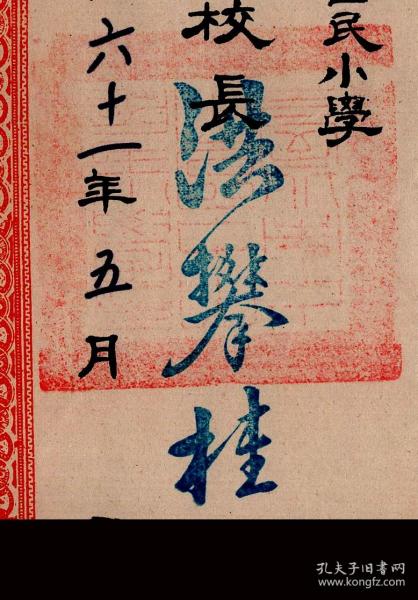 民小學
校長
洪攀桂
六十一年五月
孔夫子旧书网
www.kongfz.com